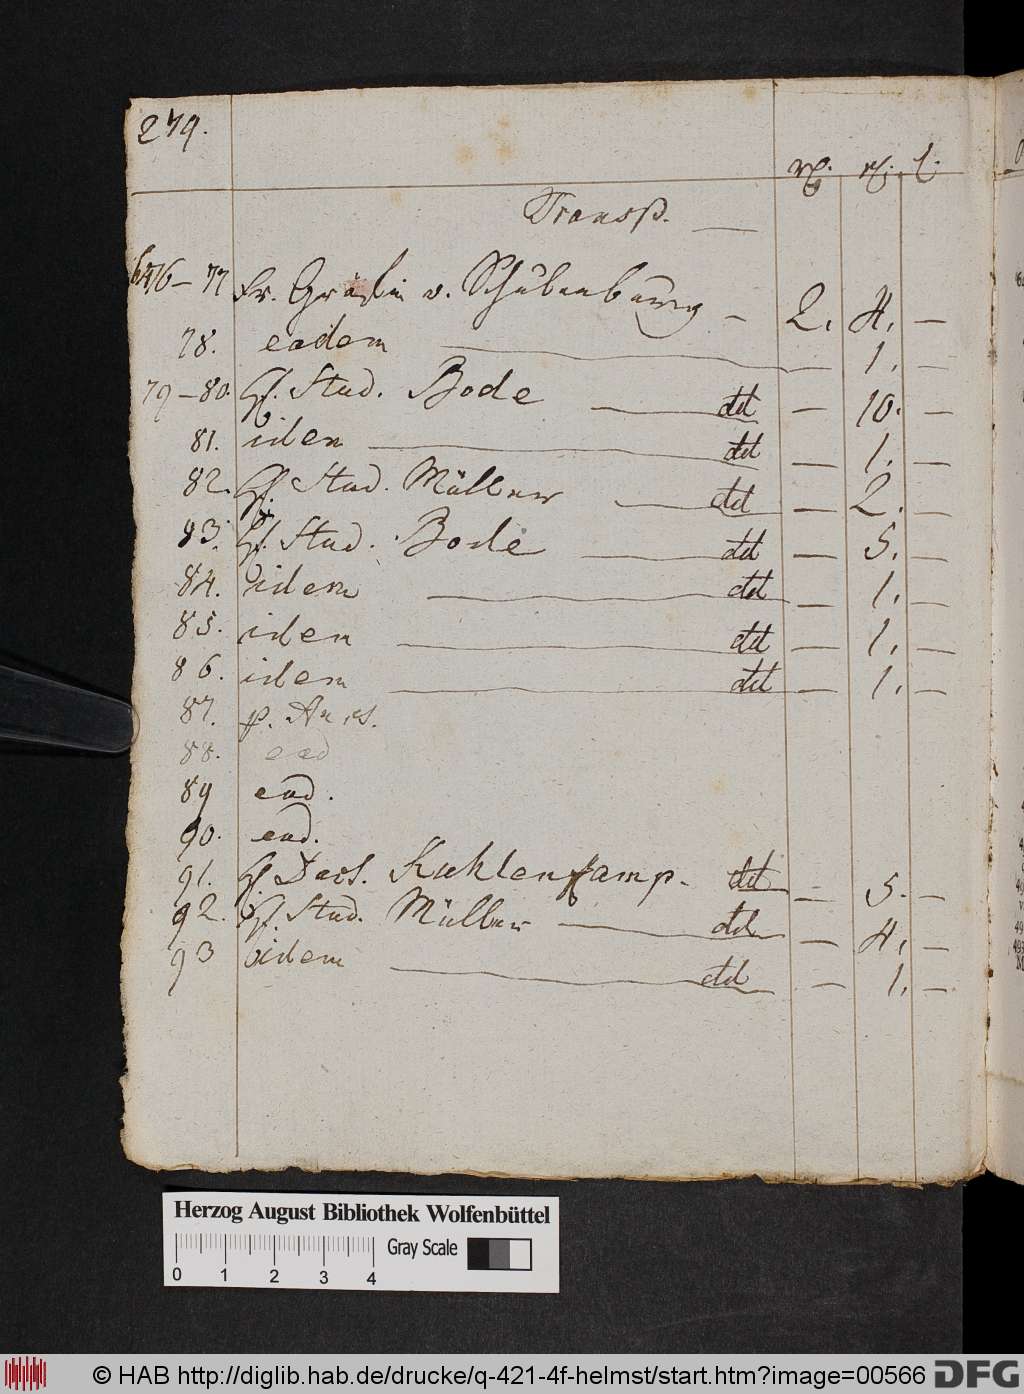 279.
rℓ. rℓ. ℓ.
Transp. —
676 – 77 Fr. Gräfin v. Schulenburg – 2. 4. —
78. eadem — 1. —
79 – 80. H. Stud. Bode — dd — 10. —
81. idem — dd — 1. —
82. H. Stud. Müller — dd — 2. —
83. H. Stud. Bode — dd — 5. —
84. idem — dd — 1. —
85. idem — dd — 1. —
86. idem — dd — 1. —
87. p.
88. ead
89 ead.
90. ead.
91. H. Kuhlenkamp. dd — 5. —
92. H. Stud. Müller — dd — 4. —
93 idem — dd — 1. —
Herzog August Bibliothek Wolfenbüttel
Gray Scale
0 1 2 3 4
© HAB http://diglib.hab.de/drucke/q-421-4f-helmst/start.htm?image=00566 DFG